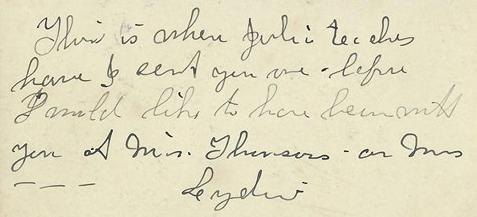 This is where Julia teaches
have I sent you one - before
I would like to have been with
you at Mrs. - or Mrs
- - -
Lydia